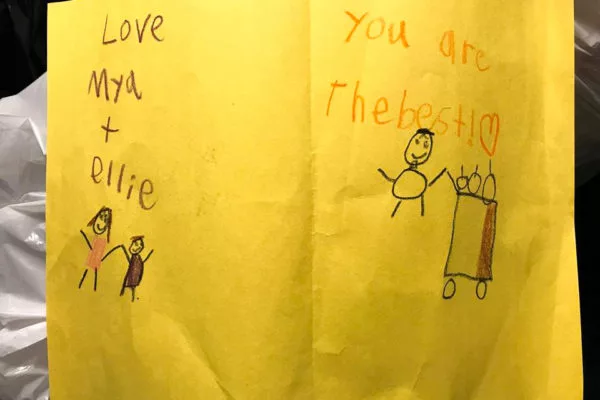 Love
Mya
+
ellie
You are
The best!♡